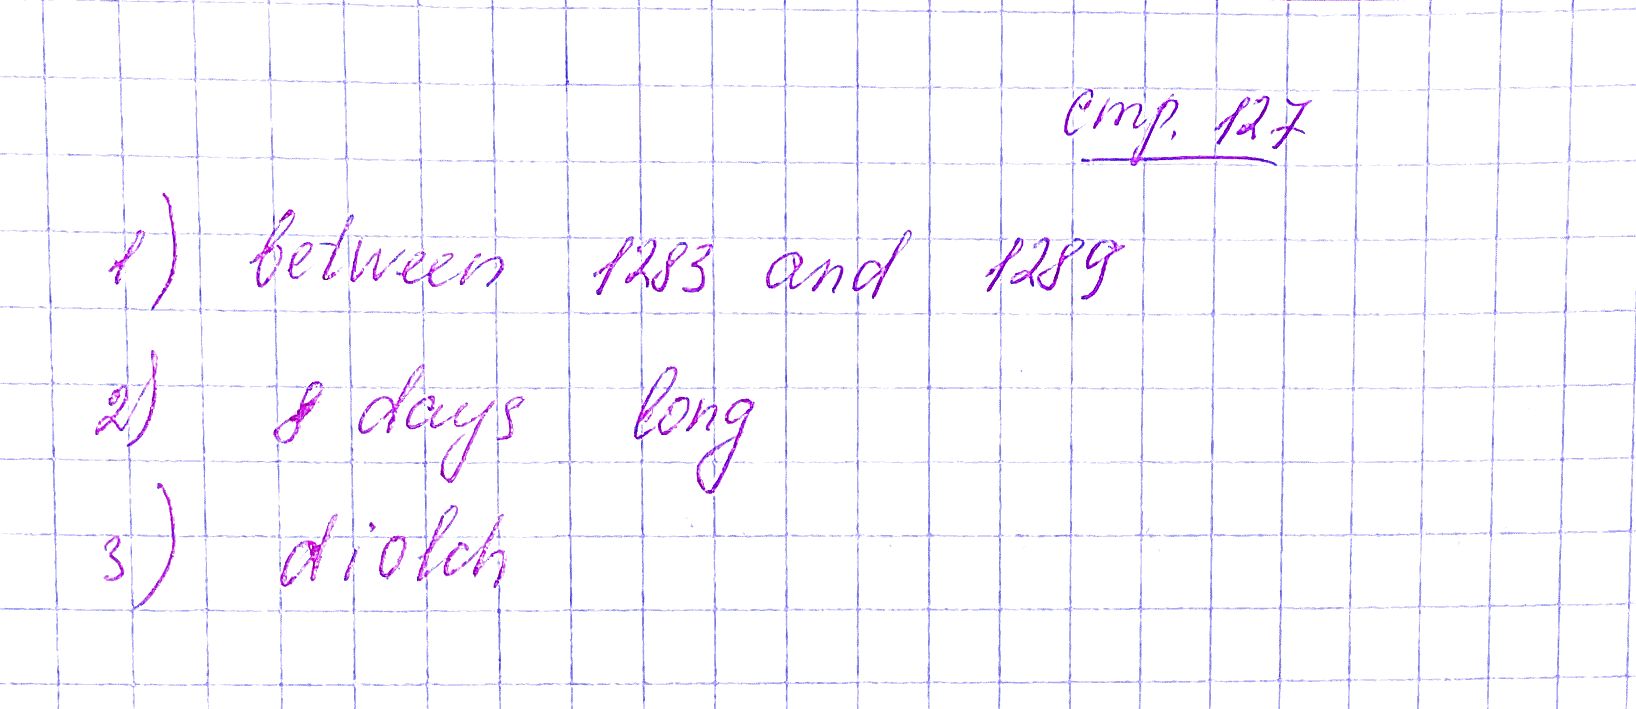 стр. 127
1) between 1283 and 1289
2) 8 days long
3) diolch